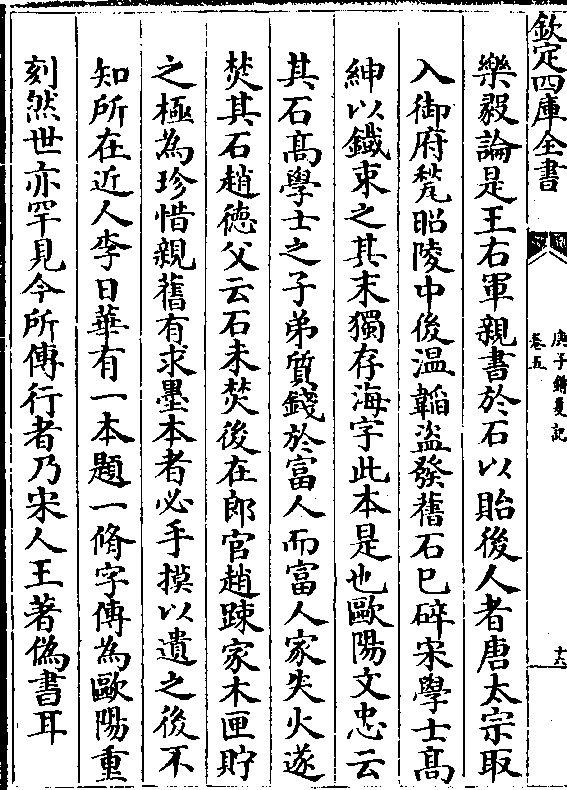 欽定四庫全書
庚子銷夏記
卷五
十六
樂毅論是王右軍親書於石以貽後人者唐太宗取
入御府甃昭陵中後温韜盜發舊石已碎宋學士髙
紳以鐵束之其末獨存海字此本是也歐陽文忠云
其石髙學士之子弟質錢於富人而富人家失火遂
焚其石趙徳父云石未焚後在郎官趙踈家木匣貯
之極為珍惜親舊有求墨本者必手摸以遺之後不
知所在近人李日華有一本題一脩字傳為歐陽重
刻然世亦罕見今所傳行者乃宋人王著偽書耳